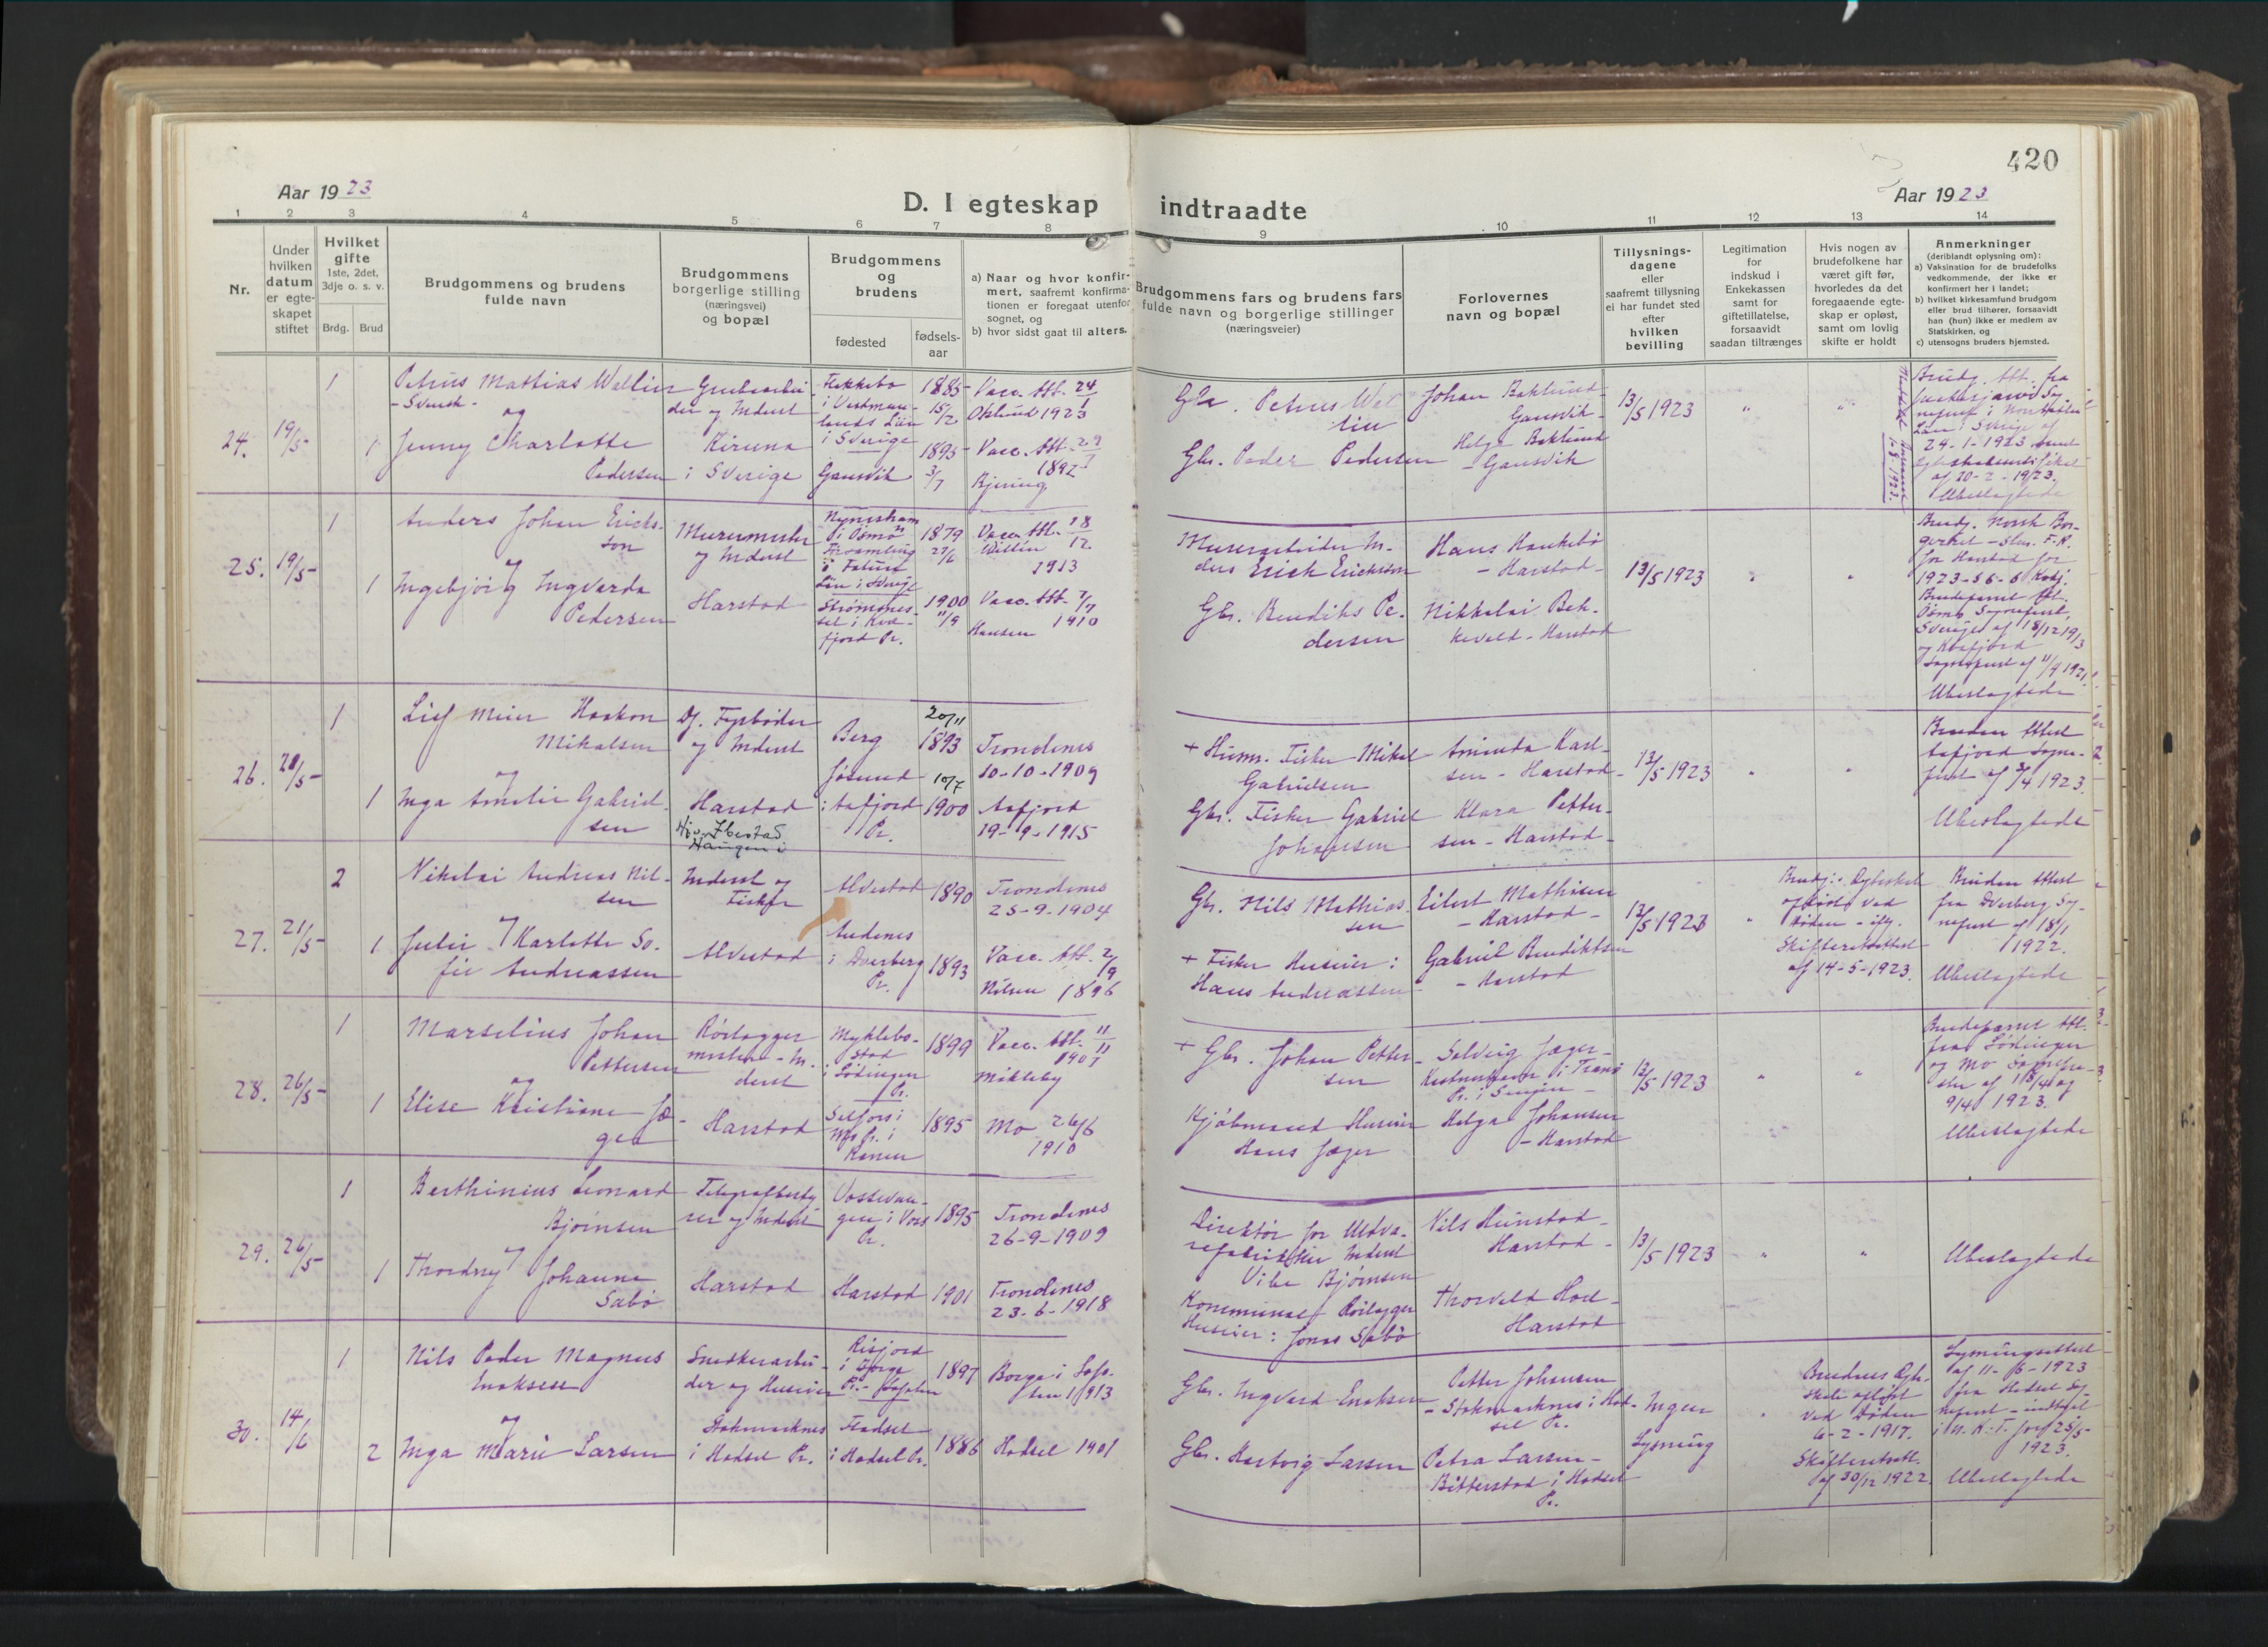 420
Aar 1923
D. I egteskap indtraadte
Aar 1923
1 2 3 4 5 6 7 8 9 10 11 12 13 14
Nr.
Under
hvilken
datum
er egte-
skapet
stiftet
Hvilket
gifte
1ste, 2det,
3dje o. s. v.
Brdg. Brud
Brudgommens og brudens
fulde navn
Brudgommens
borgerlige stilling
(næringsvei)
og bopæl
Brudgommens
og
brudens
fødested
fødsels-
aar
a) Naar og hvor konfir-
mert, saafremt konfirma-
tionen er foregaat utenfor
sognet, og
b) hvor sidst gaat til alters.
Brudgommens fars og brudens fars
fulde navn og borgerlige stillinger
(næringsveier)
Forlovernes
navn og bopæl
Tillysnings-
dagene
eller
saafremt tillysning
ei har fundet sted
efter
hvilken
bevilling
Legitimation
for
indskud i
Enkekassen
samt for
giftetillatelse,
forsaavidt
saadan tiltrænges
Hvis nogen av
brudefolkene har
været gift før,
hvorledes da det
foregaaende egte-
skap er opløst,
samt om lovlig
skifte er holdt
Anmerkninger
(deriblandt oplysning om):
a) Vaksination for de brudefolks
vedkommende, der ikke er
konfirmert her i landet;
b) hvilket kirkesamfund brudgom
eller brud tilhører, forsaavidt
han (hun) ikke er medlem av
Statskirken, og
c) utensogns bruders hjemsted.
24.
19/5-
1
1
Petrus Mattias Wallin
- Svensk -
og
Jenny Charlotte
Pedersen
Grubearbei-
der og Inderst
Kiruna
i Sverige
i Vestman-
lands Län
i Sverige
Gansvik
1885-
15/2
1895-
3/7
Vacc. Att. 24/1
1923
Vacc. Att. 29/7
1892
Petrus Wal
lin
Gbr. Peder Pedersen
Johan Baklund
Gansvik -
Helge Baklund
- Gansvik
13/5 1923
"
"
Brudg. Att. fra
24-1-1923 samt
af 20-2-1923.
Ubeslægtede
25.
19/5-
1
1
Anders Johan Ericks-
son
og
Ingebjørg Ingvarda
Pedersen
Murermester
og Inderst
Harstad
i Ösmo
Län i Sverige
Strømsnes-
set i Kvæ-
fjord Pr.
1879
27/6
1900
11/9
Vacc. Att. 18/12
1913
Vacc. Att. 7/7
1910
Hansen
Murerarbeider An-
ders Erick Ericksson
Gbr. Bendiks Pe-
dersen
Hans Haukebø
- Harstad -
Nikkolai Bek-
keveld - Harstad
13/5 1923
"
"
Brudg. Norsk Bor-
gerket -
for Harstad for
Brudeparret Att.
Ösmo Sogneprest,
Sverige af 18/12 1913
og Kvæfjord
Sogneprest af 11/4 1921.
Ubeslægtede
26.
21/5-
1
1
Lief Meier Haakon
Mikalsen
og
Inga Amalie Gabriel-
sen
Df. Fyrbøder
og Inderst
Harstad
Berg
Jøsund
i Aafjord
Pr.
20/11
1893
10/7
1900
Trondenes
10-10-1909
Aafjord
19-9-1915
+ Husm. Fisker Mikal
Gabrielsen
Gbr. Fisker Gabriel
Johansen
Aminda Karl-
sen - Harstad -
Klara Petter-
sen - Harstad -
13/5 1923
"
"
Bruden Attest
Aafjord Sogne-
prest af 3/4 1923.
Ubeslægtede
27.
21/5-
2
1
Nikolai Andreas Nil-
sen
og
Julie Karlotte So-
fie Andreassen
Ibestad
Haugen i
Inderst og
Fisker
Alvestad
Alvestad
Andenes
i Dverberg
Pr.
1890
1893
Trondenes
25-9-1904
Vacc. Att. 2/9
Nilsen 1896
Gbr. Nils Mathias-
sen
+ Fisker Huseier:
Hans Andreassen
Eilert Mathisen
- Harstad -
Gabriel Bendiktsen
- Harstad
13/5 1923
"
Brudg: Egteskab
opløst ved
Døden - iflg.
Skifteretsattest
af 14-5-1923.
Bruden Attest
fra Dverberg Sog-
neprest af 18/1
1922.
Ubeslægtede
28.
26/5-
1
1
Marselius Johan
Pettersen
og
Elise Kristiane Jæ-
ger
Rørlægger
mester - In-
derst
Harstad
Myklebo-
stad
i Lødingen
Pr.
Selfors i
Mo Pr. i
Ranen
1899
1895
Vacc. Att. 11/11
1907
Mikleby
Mo 26/6
1910
+ Gbr. Johan Petter-
sen
Kjøbmand Huseier
Hans Jæger
Solveig Jæger -
Helga Johansen
- Harstad
13/5 1923
"
"
Brudeparret Att.
fra Lødingen
og Mo Sognepre-
ster af 18/4 og
9/4 1923.
Ubeslægtede
29.
26/5-
1
1
Berthinius Leonard
Bjørnsen
og
Thordny Johanne
Sabø
Telegrafbesty
rer og Inderst
Harstad
Vossevan-
gen i Voss
Pr.
Harstad
1895
1901
Trondenes
26-9-1909
Trondenes
23-6-1918
Direktør for Uldva-
refabrikker Inderst
Vibe Bjørnsen
Kommunal Rørlægger
Huseier: Jonas Sabø
Nils Hunstad -
Harstad -
Thorvald Hoel -
Harstad
13/5 1923
"
"
Ubeslægtede
30.
14/6
1
2
Nils Peder Magnus
Enoksen
og
Inga Marie Larsen
Snedkerarbei-
der og Huseier
Stokmarknes
i Hadsel Pr.
Risjord
i Borge
Pr. - Lofoten
Hadsel
i Hadsel Pr.
1897
1886
Borge i Lofo-
ten 1913
Hadsel 1901
Gbr. Ingvard Enoksen
Gbr. Hartvig Larsen
Petter Johansen
- Stokmarknes i Had-
sel Pr.
Petra Larsen -
Bitterstad i Hadsel
Pr.
Ingen
Lysning
"
Brudens Egte-
skab opløst
ved Døden
6-2-1917.
Skifteretsatt.
af 30/12 1922
Lysningsattest
af 11-6-1923
fra Hadsel Sog-
neprest - indtaget
i N. K. T. for 25/5-
1923.
Ubeslægtede